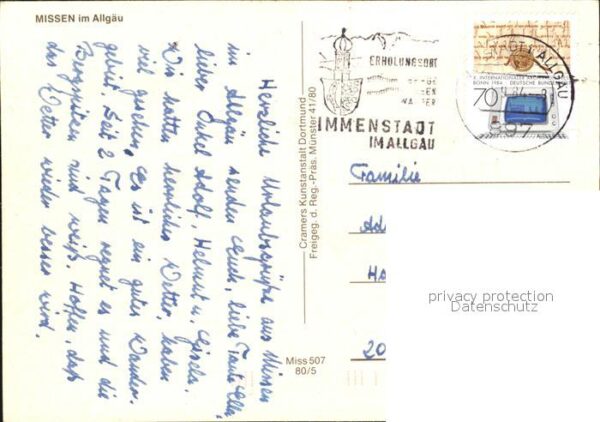 MISSEN im Allgäu
Herzliche Urlaubsgrüße aus Missen
im Allgäu senden Euch, liebe Tante Ella,
lieber Onkel Adolf, Helmut u. Gisela.
Wir hatten herrliches Wetter, haben
viel gesehen. Es ist ein gutes Wander-
gebiet. Seit 2 Tagen regnet es und die
Bergspitzen sind weiß. Hoffen, daß
das Wetter wieder besser wird.
Cramers Kunstanstalt Dortmund
Freigeg. d. Reg.-Präs. Münster 41/80
Miss 507
80/5
ERHOLUNGSORT
IMMENSTADT
IM ALLGÄU
ALLGÄU
897
BONN 1984
DEUTSCHE BUNDES
70
Familie
Ad
Ha
20
privacy protection
Datenschutz